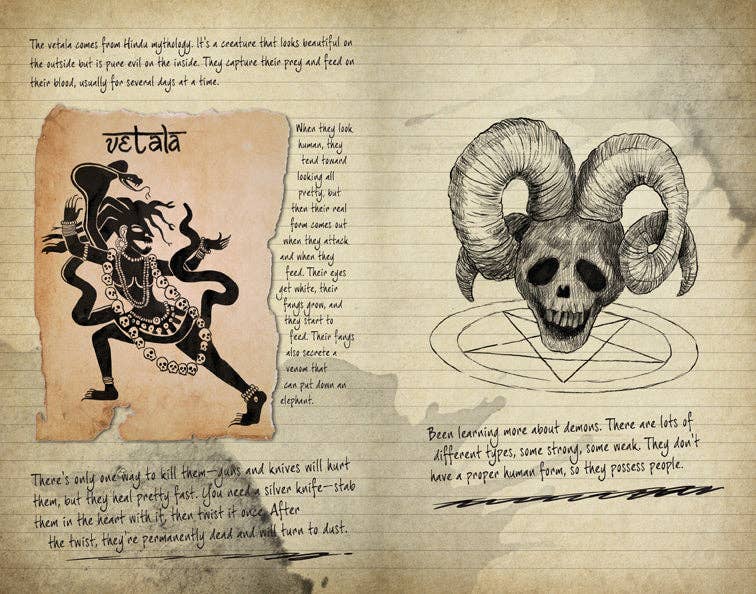 The vetala comes from Hindu mythology. It's a creature that looks beautiful on
the outside but is pure evil on the inside. They capture their prey and feed on
their blood, usually for several days at a time.
vetala
When they look
human, they
tend toward
looking all
pretty, but
then their real
form comes out
when they attack
and when they
feed. Their eyes
get white, their
fangs grow, and
they start to
feed. Their fangs
also secrete a
venom that
can put down an
elephant.
There's only one way to kill them—guns and knives will hurt
them, but they heal pretty fast. You need a silver knife—stab
them in the heart with it, then twist it once. After
the twist, they're permanently dead and will turn to dust.
Been learning more about demons. There are lots of
different types, some strong, some weak. They don't
have a proper human form, so they possess people.